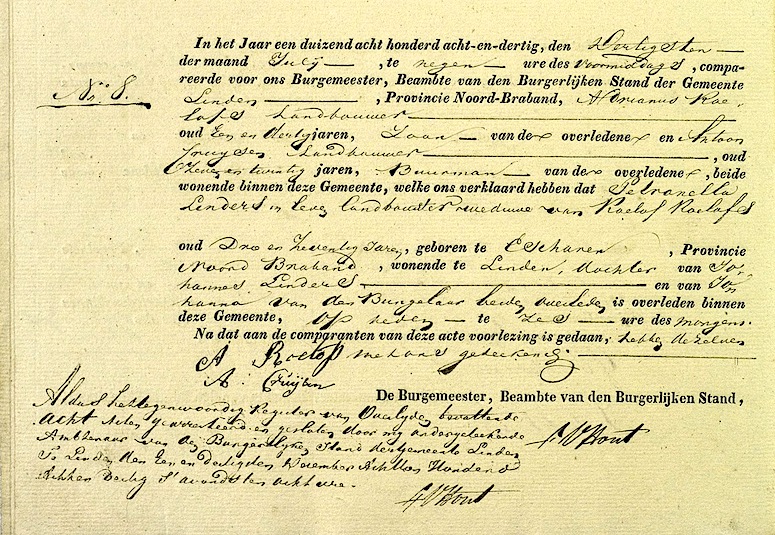 In het Jaar een duizend acht honderd acht-en-dertig, den Dertigsten
der maand Julij , te negen ure des voormiddags , compa-
reerde voor ons Burgemeester, Beambte van den Burgerlijken Stand der Gemeente
No. 8.
Linden , Provincie Noord-Braband, Adrianus Roe-
lofs Landbouwer
oud Een en dertig jaren, Zoon van de overledene en Antoon
Cruysen Landbouwer , oud
Zeven en twintig jaren, Buurman van de overledene , beide
wonende binnen deze Gemeente, welke ons verklaard hebben dat Petronella
Linders in leven Landbouwster weduwe van Roelof Roelofs
oud Drie en zeventig Jaren, geboren te Escharen , Provincie
Noord Braband , wonende te Linden, dochter van Jo-
hannes Linders en van Jo-
hanna van den Bungelaar beiden overleden is overleden binnen
deze Gemeente, op heden te zes ure des morgens.
Na dat aan de comparanten van deze acte voorlezing is gedaan, hebben dezelven
A Roelofs met ons geteekend.
A. Cruijsen
De Burgemeester, Beambte van den Burgerlijken Stand,
Aldus het tegenwoordig Register van Overlyden bevattende
acht Acten geverifieerd en gesloten door my ondergeteekende
Ambtenaar van den Burgerlyken Stand der Gemeente Linden
Te Linden den Een en dertigsten December Achttien Honderd
Achten dertig S'avonds ten acht ure.